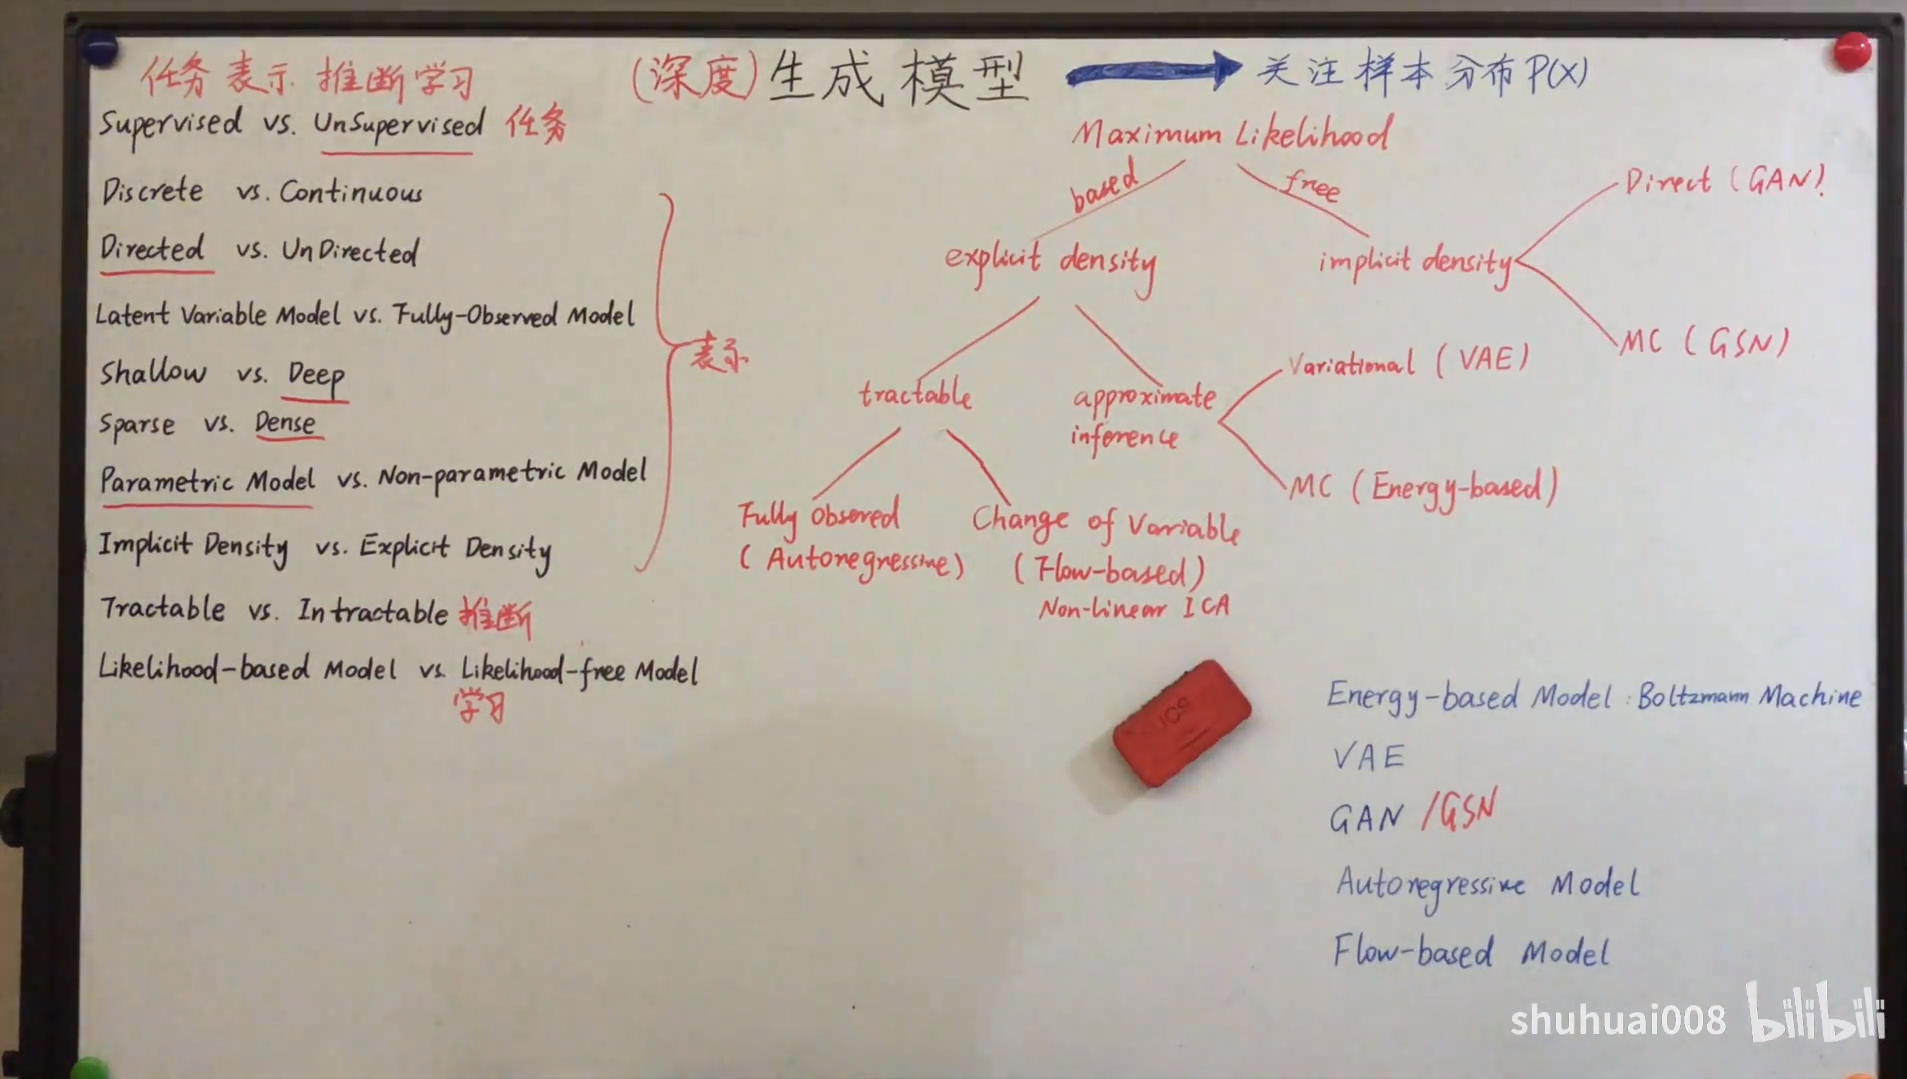 任务 表示 推断 学习
(深度)生成模型
关注样本分布P(X)
Supervised vs. UnSupervised 任务
Discrete vs. Continuous
Directed vs. UnDirected
Latent Variable Model vs. Fully-Observed Model
Shallow vs. Deep
Sparse vs. Dense
Parametric Model vs. Non-parametric Model
Implicit Density vs. Explicit Density
表示
Tractable vs. Intractable 推断
Likelihood-based Model vs. Likelihood-free Model
学习
Maximum Likelihood
based
free
explicit density
implicit density
Direct (GAN)
MC (GSN)
tractable
approximate
inference
Variational (VAE)
MC (Energy-based)
Fully Obsered
(Autoregressive)
Change of Variable
(Flow-based)
Non-linear ICA
Energy-based Model: Boltzmann Machine
VAE
GAN /GSN
Autoregressive Model
Flow-based Model
shuhuai008 bilibili